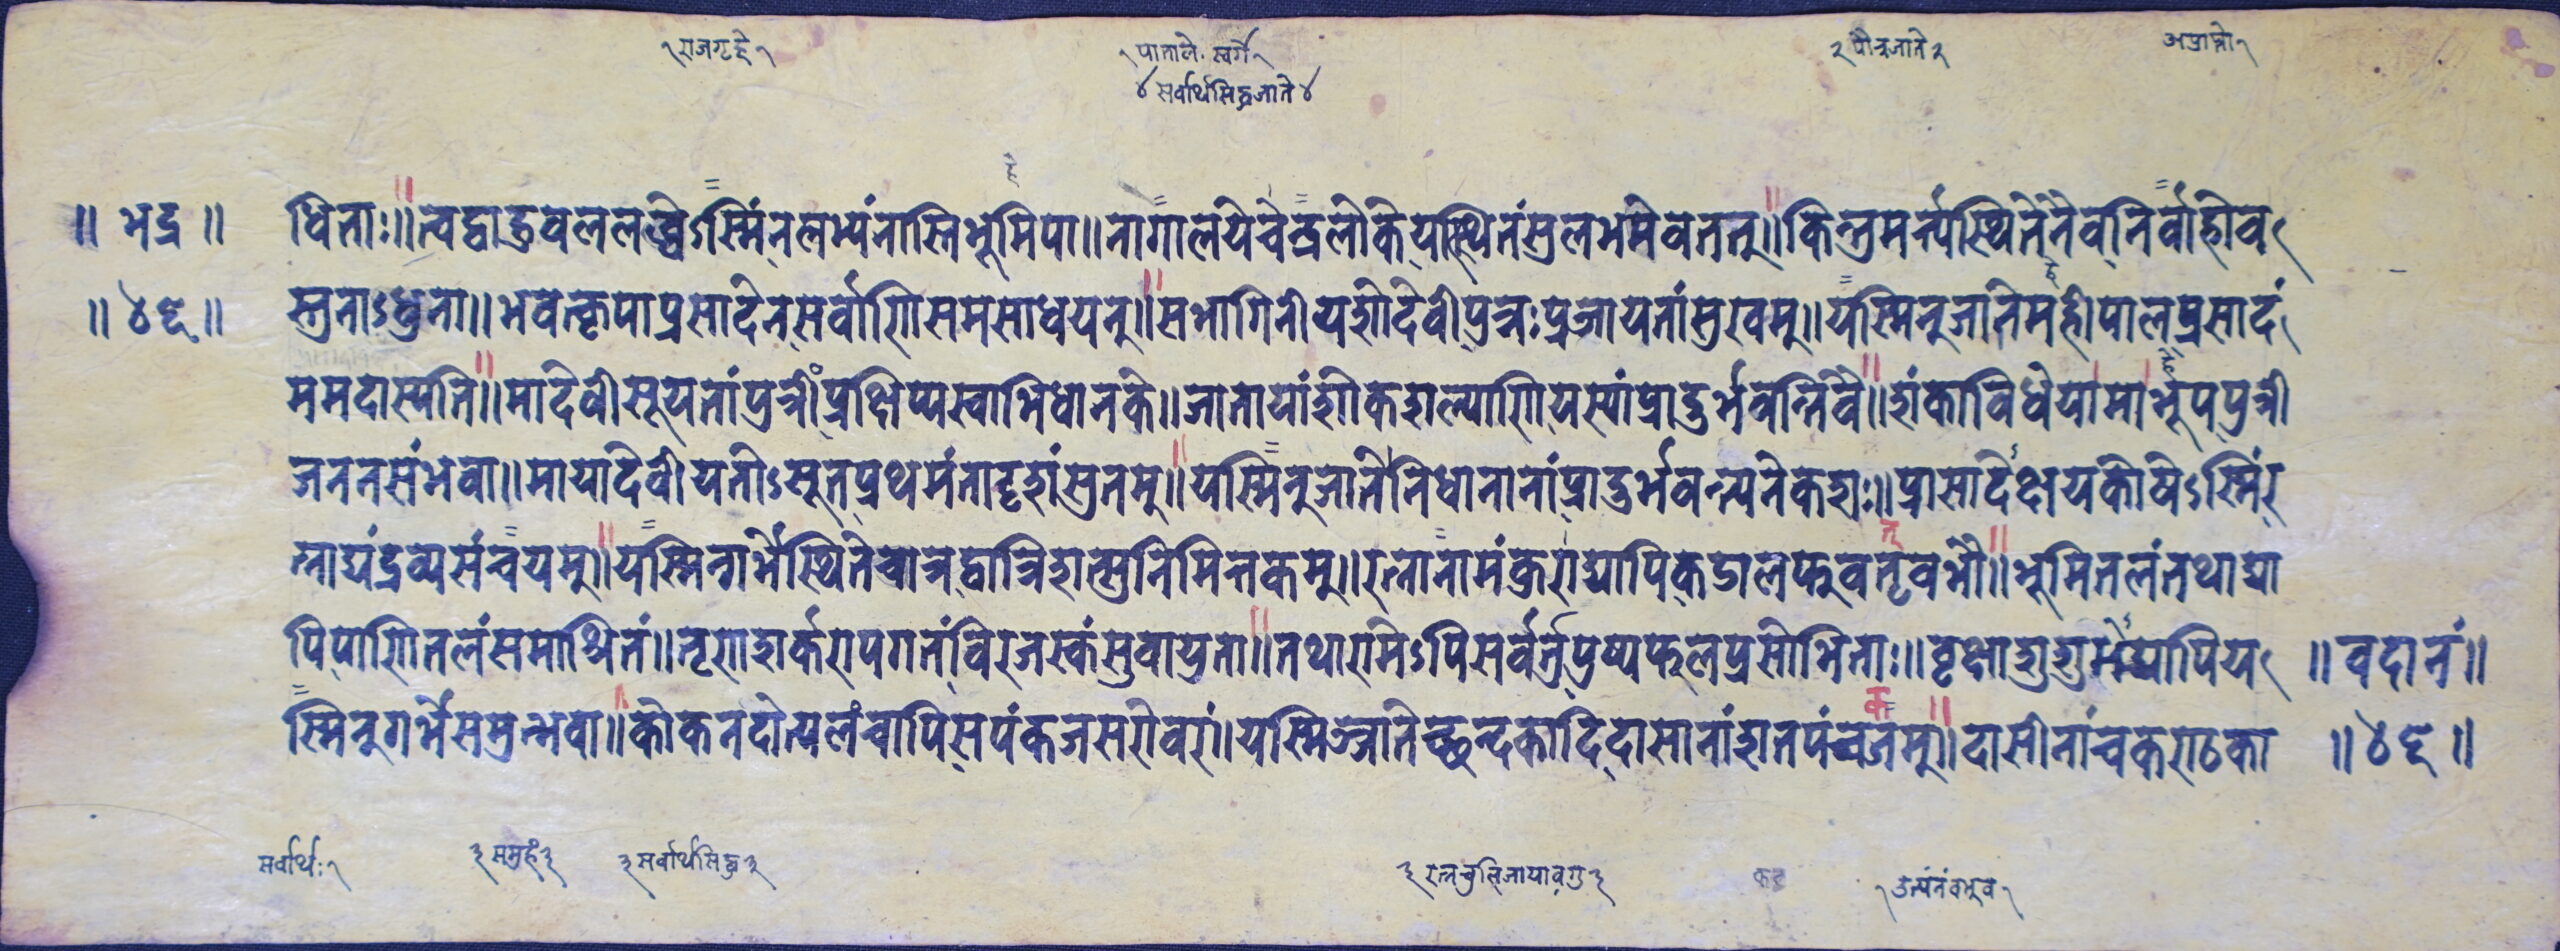 १ राजगृहे १
१ पाताले. स्वर्गे १
४ सर्वार्थसिद्धजाते ४
२ पौत्रजाते २
॥ भद्र ॥ धिताः॥ त्वद्वाहुबललब्धेऽस्मिंन्लभ्यंनास्तिभूमिपा॥ नागालयेचेन्द्रलोकेयस्थितंसुलभमेवतत्॥ किन्तुमर्त्त्यस्थितेनैवनिर्वाहोव
॥ ४६ ॥ स्तुनाऽधुना॥ भवत्कृपाप्रसादेनसर्वाणिसमसाधयन्॥ सभागिनीयशोदेवीपुत्रःप्रजायतांसुखम्॥ यस्मिन्जातेमहीपालप्रसादं
ममदास्यति॥ मादेवीसूयतांपुत्रींप्रक्षिप्यस्वाभिधानके॥ जातायांशोकशल्याणियस्यांप्रादुर्भवन्तिवै॥ शंकाविधेयामाभूपपुत्री
जननसंभवा॥ मायादेवीयतोऽसूतप्रथमंतादृशंसुतम्॥ यस्मिन्जातेनिधानानांप्रादुर्भवन्त्यनेकशः॥ प्रासादेक्षयकोषेऽस्मिंर
त्नाद्यंद्रव्यसंचयम्॥ यस्मिन्गर्भेस्थितेचात्रद्वात्रिंशत्सुनिमित्तकम्॥ रत्नानामंकुराद्यापिकडालफुवतृवभौ॥ भूमितलंतथाद्या
पिपाणितलंसमाश्रितं॥ तृणशर्करापगतंविरजस्कंसुवायुता॥ तथारामेऽपिसर्वर्तुपुष्पफलप्रसोभिताः॥ वृक्षाशुशुभेद्यापिय ॥ वदानं॥
स्मिन्गर्भेसमुन्भवा॥ कोकनदोत्पलंचापिसपंकजसरोवरां॥ यस्मिञ्जातेच्छन्दकादिदासानांशतपंचजम्॥ दासीनांचकराठका ॥ ४६ ॥
सर्वार्थः १
३ समुहं ३
३ सर्वार्थसिद्ध ३
१ उत्पंनंवभुव १